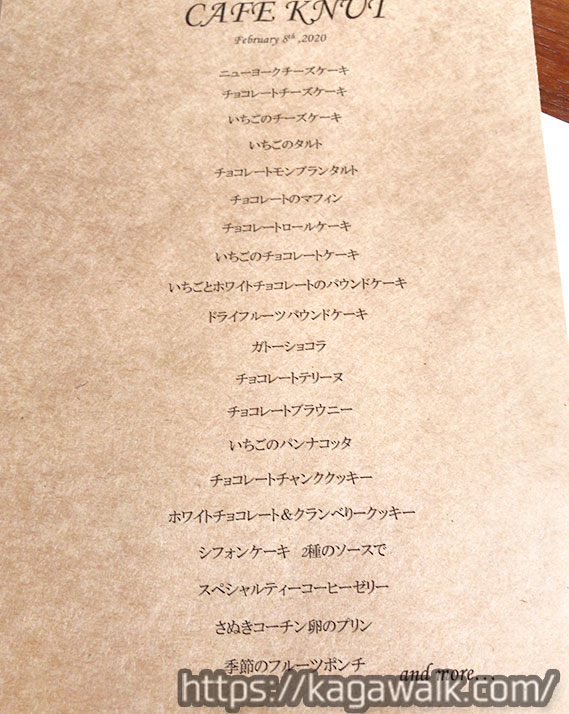 CAFE KNUT
February 8th ,2020
ニューヨークチーズケーキ
チョコレートチーズケーキ
いちごのチーズケーキ
いちごのタルト
チョコレートモンブランタルト
チョコレートのマフィン
チョコレートロールケーキ
いちごのチョコレートケーキ
いちごとホワイトチョコレートのパウンドケーキ
ドライフルーツパウンドケーキ
ガトーショコラ
チョコレートテリーヌ
チョコレートブラウニー
いちごのパンナコッタ
チョコレートチャンククッキー
ホワイトチョコレート&クランベリークッキー
シフォンケーキ 2種のソースで
スペシャルティーコーヒーゼリー
さぬきコーチン卵のプリン
季節のフルーツポンチ
and more...
https://kagawalk.com/